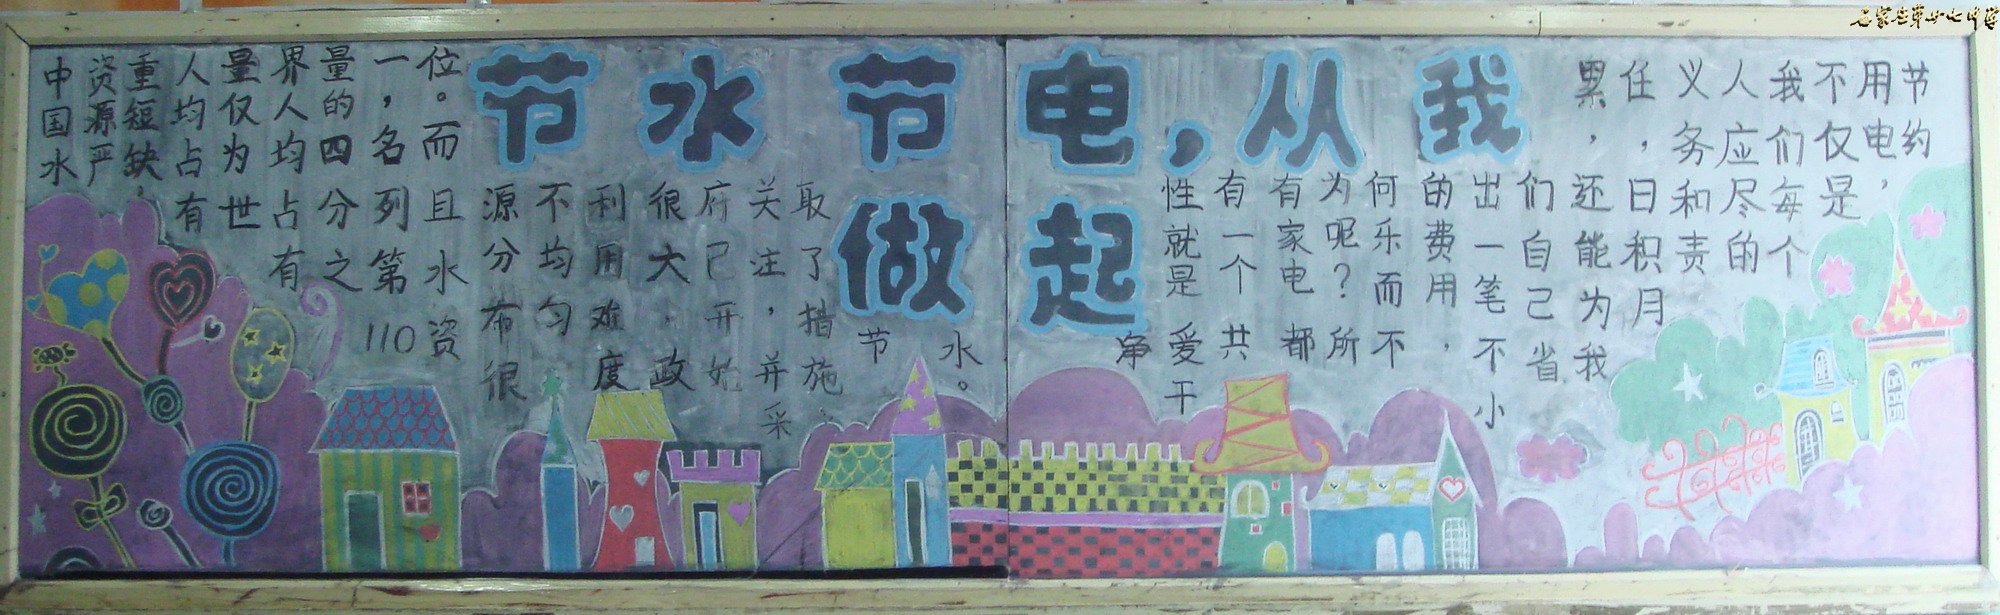 石家庄第廿七中学
节水节电，从我
做起
中国水
资源严
重短缺，
人均占有
量仅为世
界人均占有
量的四分之
一，名列第110
位。而且水资
源分布很
不均匀
利用难度
很大，政
府已开始
关注，并采
取了措施
节水。
节约
用电，
不仅是
我们每个
人应尽的
义务和责
任，日积月
累，还能为我
们自己省
出一笔不小
的费用，
何乐而不
为呢？所
有家电都
有一个共
性就是爱干
净